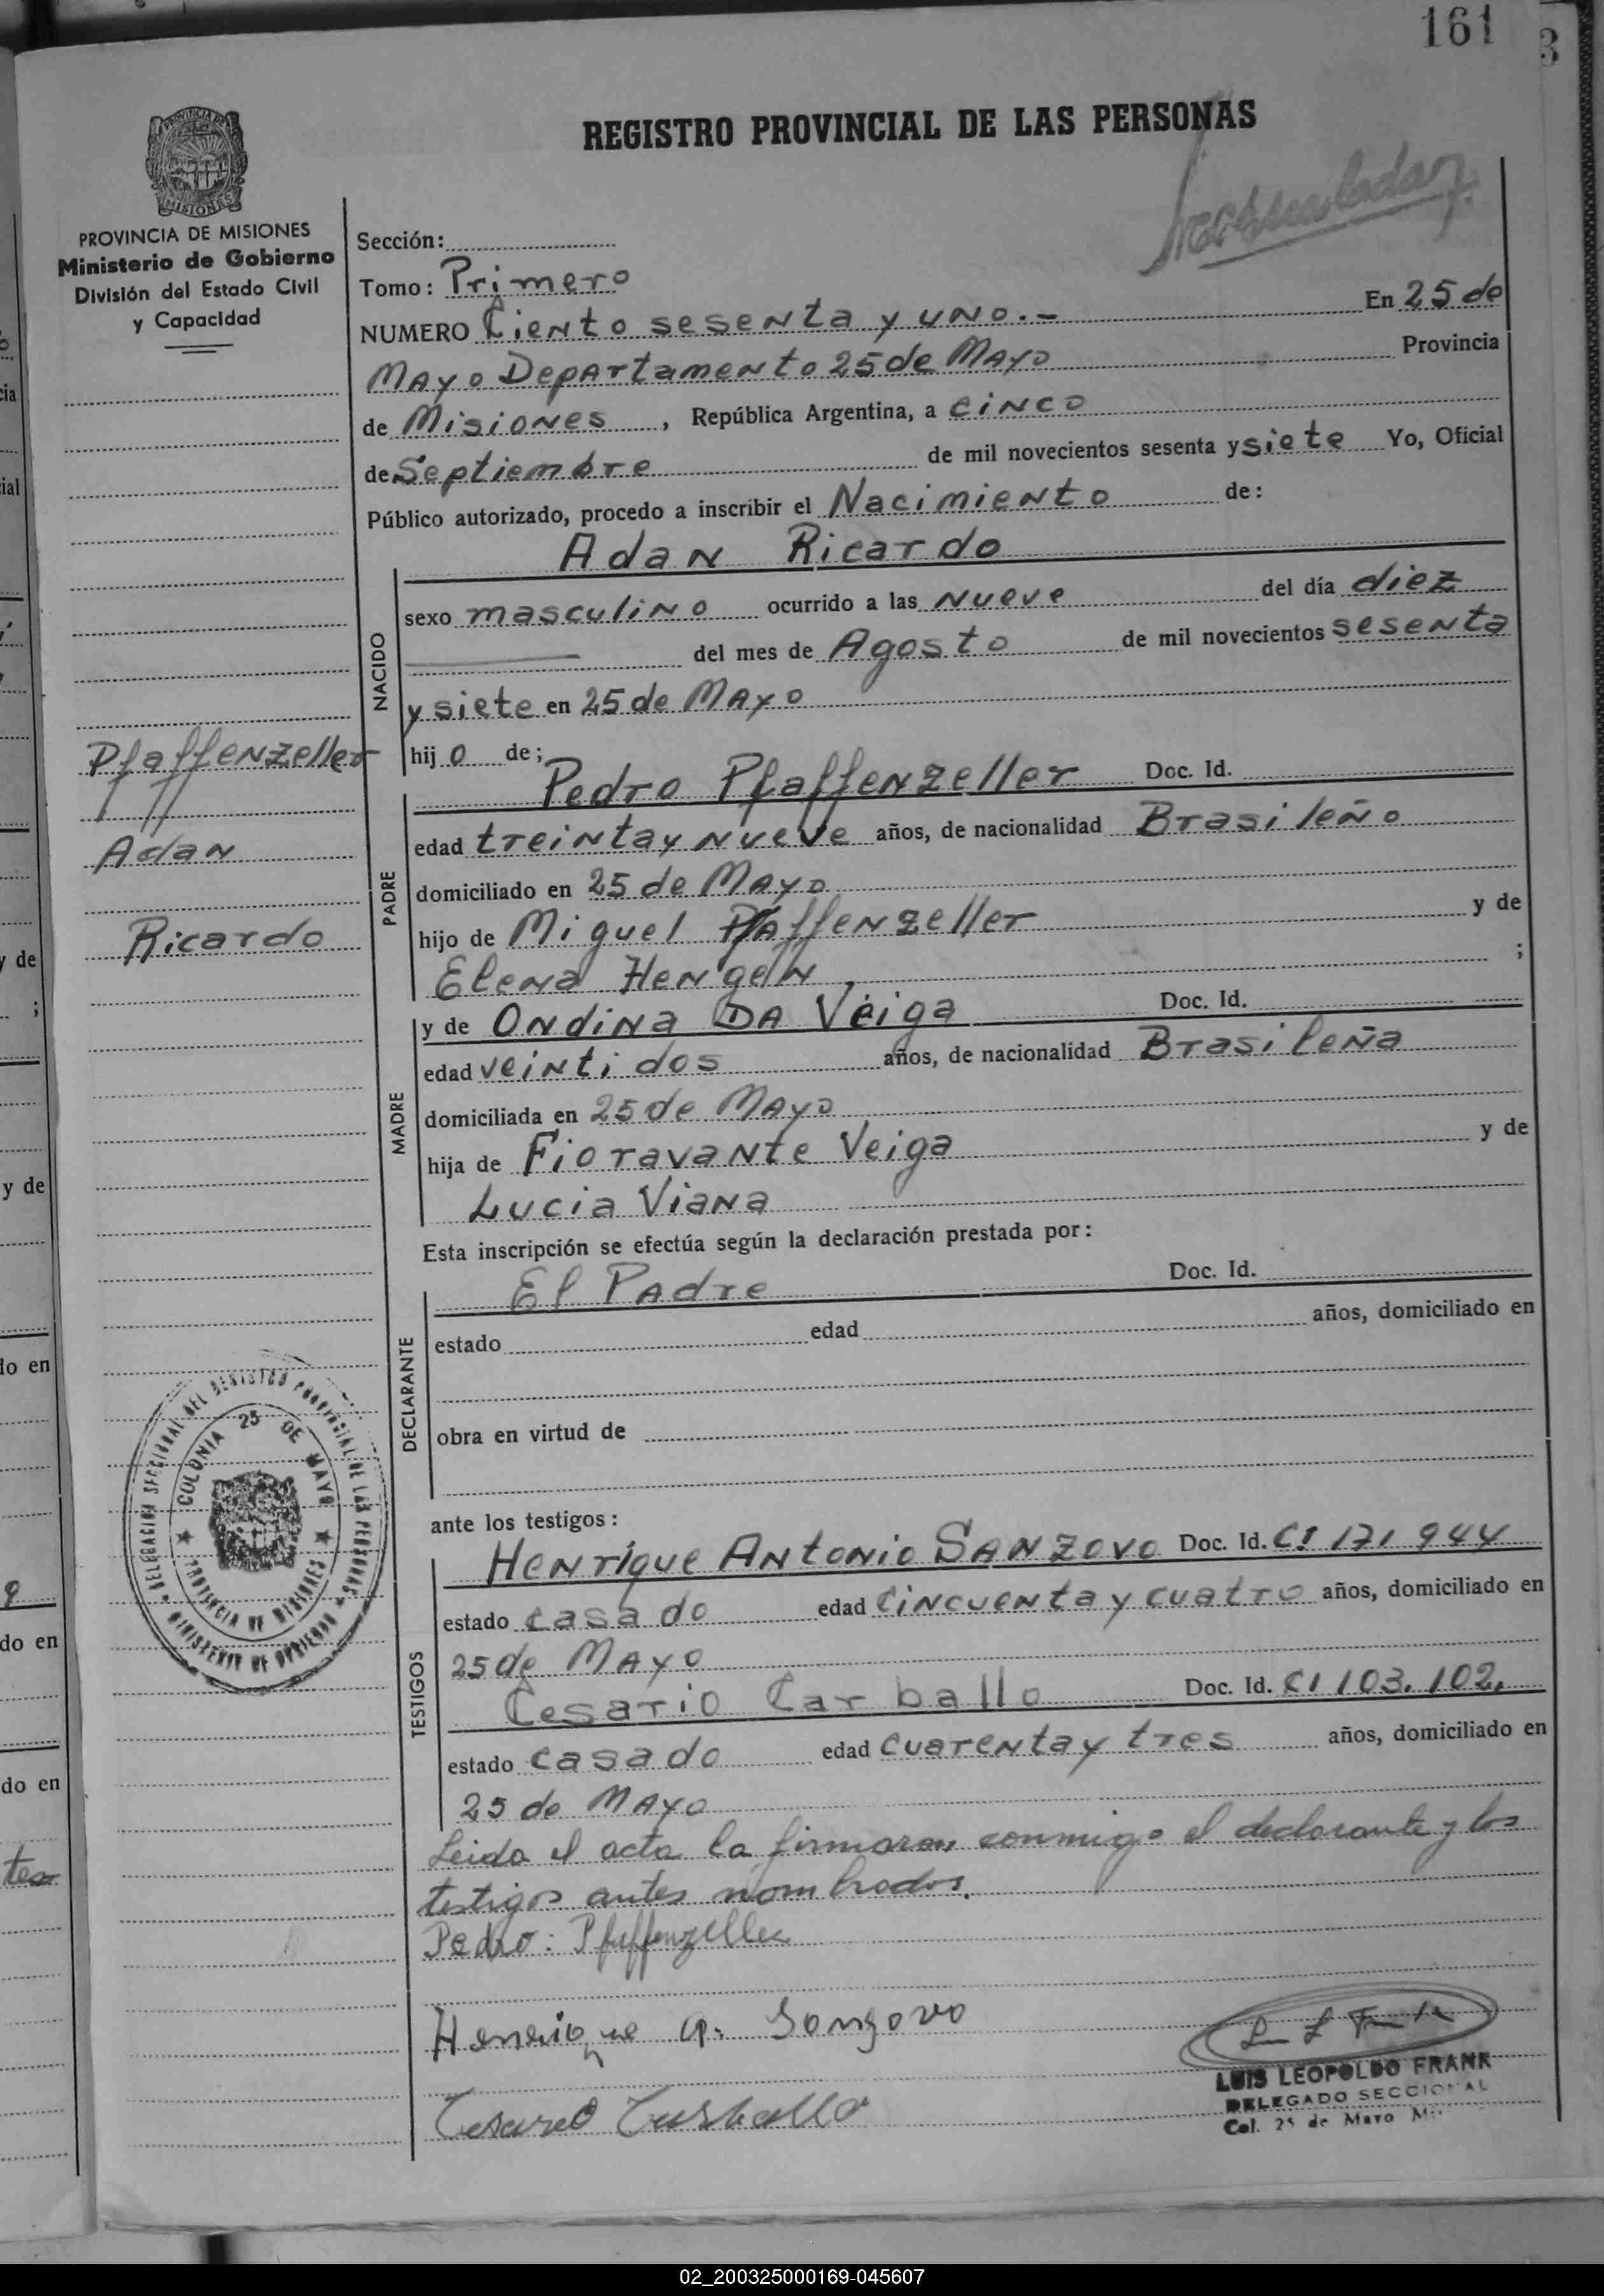 161
3
REGISTRO PROVINCIAL DE LAS PERSONAS
PROVINCIA DE MISIONES
MISIONES
PROVINCIA DE MISIONES
Ministerio de Gobierno
División del Estado Civil
y Capacidad
Sección:
Tomo: Primero
NUMERO Ciento sesenta y uno.- En 25 de
Mayo Departamento 25 de Mayo Provincia
de Misiones, República Argentina, a cinco
de Septiembre de mil novecientos sesenta y siete Yo, Oficial
Público autorizado, procedo a inscribir el Nacimiento de:
Adan Ricardo
NACIDO
sexo masculino ocurrido a las nueve del día diez
del mes de Agosto de mil novecientos sesenta
y siete en 25 de Mayo
hijo de;
Pfaffenzeller
Adan
Ricardo
PADRE
Pedro Pfaffenzeller Doc. Id.
edad treinta y nueve años, de nacionalidad Brasileño
domiciliado en 25 de Mayo
hijo de Miguel Pfaffenzeller y de
Elena Hengen ;
MADRE
y de Ondina DA Veiga Doc. Id.
edad veinti dos años, de nacionalidad Brasileña
domiciliada en 25 de Mayo
hija de Fioravante Veiga y de
Lucia Viana
Esta inscripción se efectúa según la declaración prestada por:
DECLARANTE
El Padre Doc. Id.
estado edad años, domiciliado en
obra en virtud de
DELEGACION SECCIONAL DEL REGISTRO PROVINCIAL DE LAS PERSONAS
MINISTERIO DE GOBIERNO
COLONIA 25 DE MAYO
PROVINCIA DE MISIONES
ante los testigos:
TESTIGOS
Henrique Antonio Sanzovo Doc. Id. C! 171 944
estado casado edad cincuenta y cuatro años, domiciliado en
25 de Mayo
Cesario Carballo Doc. Id. CI 103.102.
estado casado edad cuarenta y tres años, domiciliado en
25 de Mayo
Leida el acta la firmaron conmigo el declarante y los
testigos antes nombrados.
Pedro: Pfaffenzeller
Henrique A. Sonzovo
Cesareo Carballo
LUIS LEOPOLDO FRANK
DELEGADO SECCIONAL
Col. 25 de Mayo
02_200325000169-045607